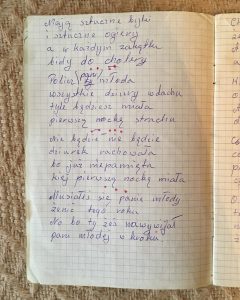 Mają sztuczne byki
i sztuczne ogiery
a w każdym zakątku
bidy do cholery
Policz pani młoda
wszystkie dziury w dachu
tyle będziesz miała
pierwszą nockę strachu
nie będzie nie będzie
dziurek rachowała
bo już niepamięta
kiej pierwszą nockę miała
Musiałeś se panie młody
żenić tego roku
No bo ty żeś nawywijał
pani młodej w kroku